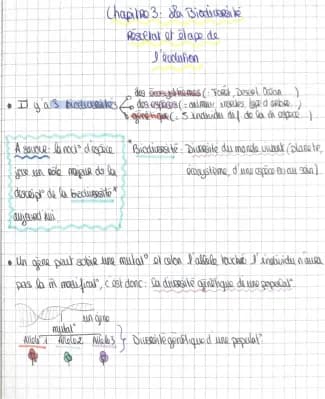 Chapitre 3: La Biodiversité
Résultat et étape de
l'évolution
des écosystèmes (: Forêt, Désert, Océan ...)
• Il y a 3 biodiversités des espèces (: animaux,
génétique (: individus de la m espèce)
A savoir: la not° d'espèce
joue un rôle majeur ds la
descript° de la biodiversité*
aujourd'hui
*Biodiversité: Diversité du monde vivant (planète,
écosystème, d'une espèce ou au sein)
• Un gène peut subir une mutat° et selon l'allèle touché l'individu n'aura
pas la m modificat°, c'est donc: la diversité génétique d'une populat°
un gène
mutat°
Allèle 1 Allèle 2 Allèle 3 } Diversité génétique d'une populat°